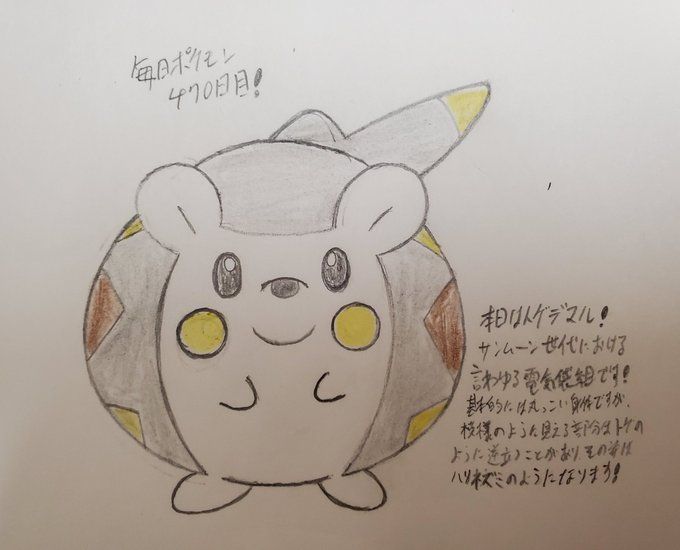 毎日ポケモン
470日目！
本日はトゲデマル！
サンムーン世代における
言わゆる電気袋組です！
基本的には丸っこい身体ですが、
模様のように見える部分はトゲの
ように逆立つことがありその姿は
ハリネズミのようになります！